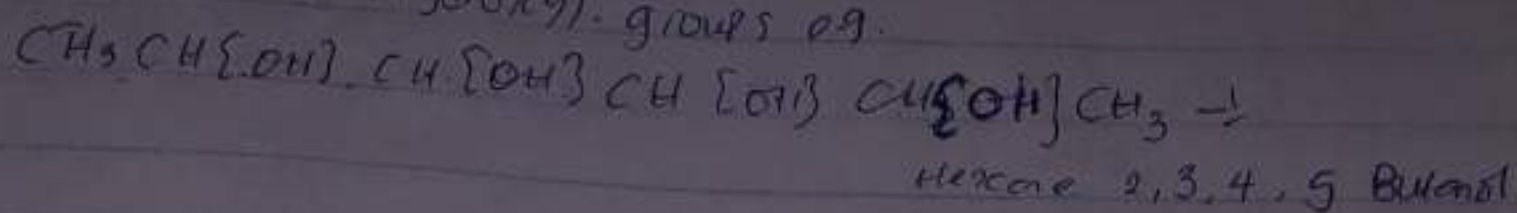 groups eg.
CH3 CH{OH} CH{OH} CH{OH} CH{OH} CH3 →
Hexane 2,3,4,5 Butanol